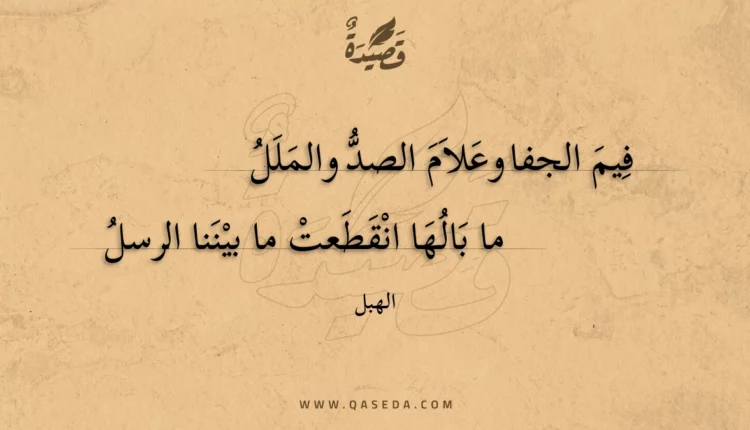 قَصِيْدَةٌ
فِيمَ الجفا وعَلاَمَ الصدُّ والمَلَلُ
ما بَالُهَا انْقَطَعتْ ما بيْنَنا الرسلُ
الهبل
WWW.QASEDA.COM